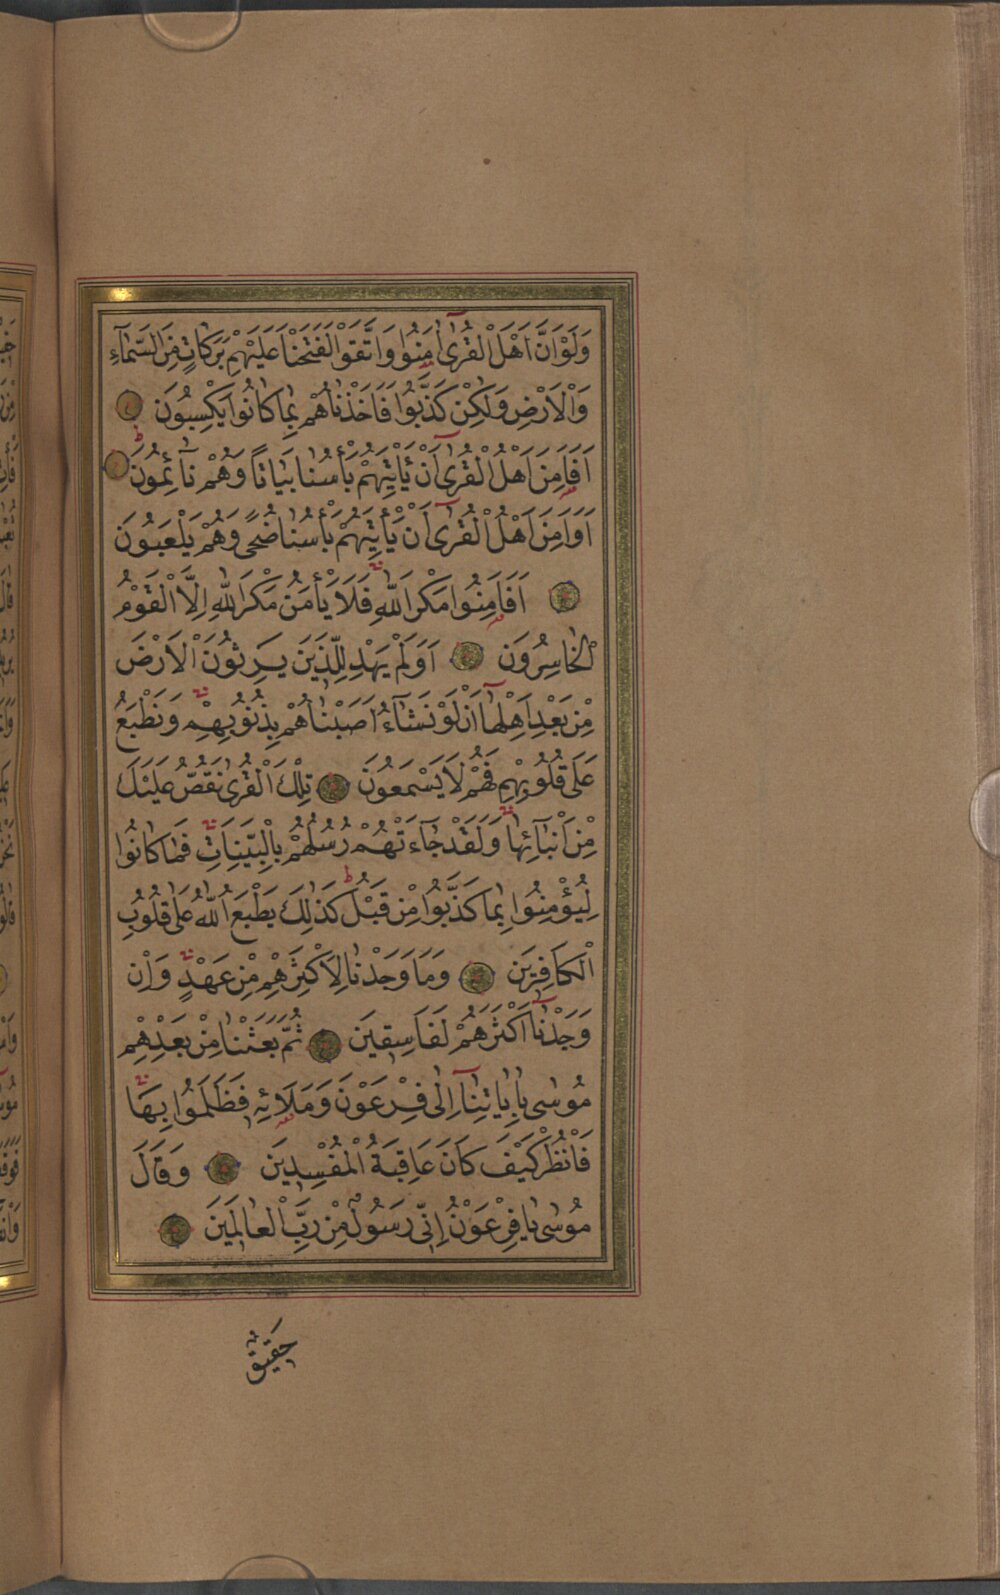 وَلَوْ اَنَّ اَهْلَ الْقُرٰٓى اٰمَنُوا وَاتَّقَوْا لَفَتَحْنَا عَلَيْهِمْ بَرَكَاتٍ مِنَ السَّمَٓاءِ
وَالْاَرْضِ وَلٰكِنْ كَذَّبُوا فَاَخَذْنَاهُمْ بِمَا كَانُوا يَكْسِبُونَ
اَفَاَمِنَ اَهْلُ الْقُرٰٓى اَنْ يَأْتِيَهُمْ بَأْسُنَا بَيَاتًا وَهُمْ نَٓائِمُونَ
اَوَاَمِنَ اَهْلُ الْقُرٰٓى اَنْ يَأْتِيَهُمْ بَأْسُنَا ضُحًى وَهُمْ يَلْعَبُونَ
اَفَاَمِنُوا مَكْرَ اللّٰهِ فَلَا يَأْمَنُ مَكْرَ اللّٰهِ اِلَّا الْقَوْمُ
الْخَاسِرُونَ اَوَلَمْ يَهْدِ لِلَّذِينَ يَرِثُونَ الْاَرْضَ
مِنْ بَعْدِ اَهْلِهَٓا اَنْ لَوْ نَشَٓاءُ اَصَبْنَاهُمْ بِذُنُوبِهِمْ وَنَطْبَعُ
عَلٰى قُلُوبِهِمْ فَهُمْ لَا يَسْمَعُونَ تِلْكَ الْقُرٰى نَقُصُّ عَلَيْكَ
مِنْ اَنْبَٓائِهَا وَلَقَدْ جَٓاءَتْهُمْ رُسُلُهُمْ بِالْبَيِّنَاتِ فَمَا كَانُوا
لِيُؤْمِنُوا بِمَا كَذَّبُوا مِنْ قَبْلُ كَذٰلِكَ يَطْبَعُ اللّٰهُ عَلٰى قُلُوبِ
الْكَافِرِينَ وَمَا وَجَدْنَا لِاَكْثَرِهِمْ مِنْ عَهْدٍ وَاِنْ
وَجَدْنَٓا اَكْثَرَهُمْ لَفَاسِقِينَ ثُمَّ بَعَثْنَا مِنْ بَعْدِهِمْ
مُوسٰى بِاٰيَاتِنَٓا اِلٰى فِرْعَوْنَ وَمَلَائِهِ فَظَلَمُوا بِهَا
فَانْظُرْ كَيْفَ كَانَ عَاقِبَةُ الْمُفْسِدِينَ وَقَالَ
مُوسٰى يَا فِرْعَوْنُ اِنِّي رَسُولٌ مِنْ رَبِّ الْعَالَمِينَ
حَقِيقٌ